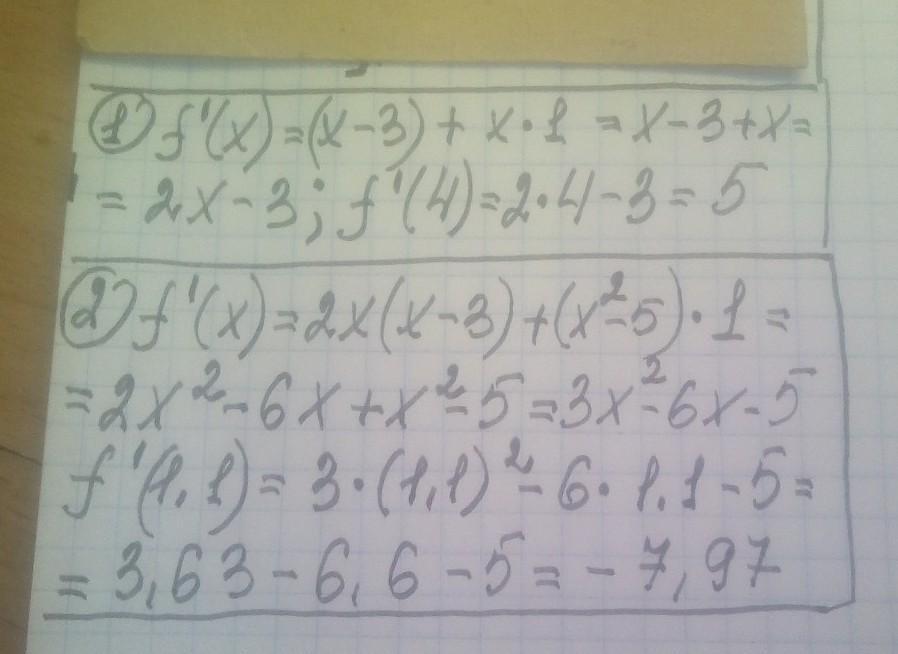 ① f'(x)=(x-3)+x·1=x-3+x=
=2x-3; f'(4)=2·4-3=5
② f'(x)=2x(x-3)+(x²-5)·1=
=2x²-6x+x²-5=3x²-6x-5
f'(1,1)=3·(1,1)²-6·1,1-5=
=3,63-6,6-5=-7,97